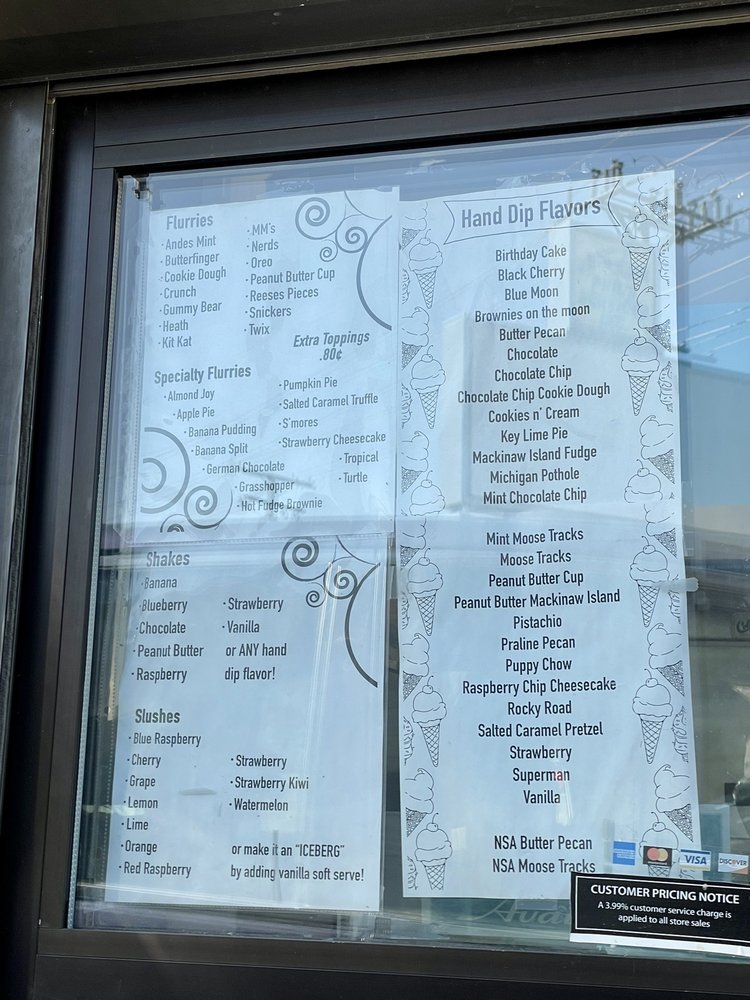 Flurries
·Andes Mint
·Butterfinger
·Cookie Dough
·Crunch
·Gummy Bear
·Heath
·Kit Kat
·MM's
·Nerds
·Oreo
·Peanut Butter Cup
·Reeses Pieces
·Snickers
·Twix
Extra Toppings
.80¢
Specialty Flurries
·Almond Joy
·Apple Pie
·Banana Pudding
·Banana Split
·German Chocolate
·Grasshopper
·Hot Fudge Brownie
·Pumpkin Pie
·Salted Caramel Truffle
·S'mores
·Strawberry Cheesecake
·Tropical
·Turtle
Shakes
·Banana
·Blueberry
·Chocolate
·Peanut Butter
·Raspberry
·Strawberry
·Vanilla
or ANY hand
dip flavor!
Slushes
·Blue Raspberry
·Cherry
·Grape
·Lemon
·Lime
·Orange
·Red Raspberry
·Strawberry
·Strawberry Kiwi
·Watermelon
or make it an "ICEBERG"
by adding vanilla soft serve!
Hand Dip Flavors
Birthday Cake
Black Cherry
Blue Moon
Brownies on the moon
Butter Pecan
Chocolate
Chocolate Chip
Chocolate Chip Cookie Dough
Cookies n' Cream
Key Lime Pie
Mackinaw Island Fudge
Michigan Pothole
Mint Chocolate Chip
Mint Moose Tracks
Moose Tracks
Peanut Butter Cup
Peanut Butter Mackinaw Island
Pistachio
Praline Pecan
Puppy Chow
Raspberry Chip Cheesecake
Rocky Road
Salted Caramel Pretzel
Strawberry
Superman
Vanilla
NSA Butter Pecan
NSA Moose Tracks
VISA
DISCOVER
CUSTOMER PRICING NOTICE
A 3.99% customer service charge is
applied to all store sales